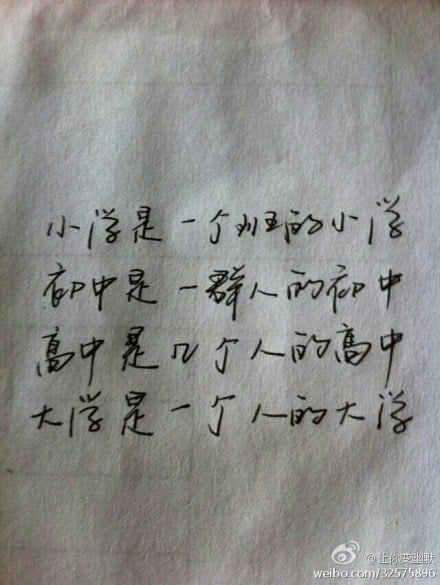 小学是一个班的小学
初中是一群人的初中
高中是几个人的高中
大学是一个人的大学
@让你变幽默
weibo.com/32575896